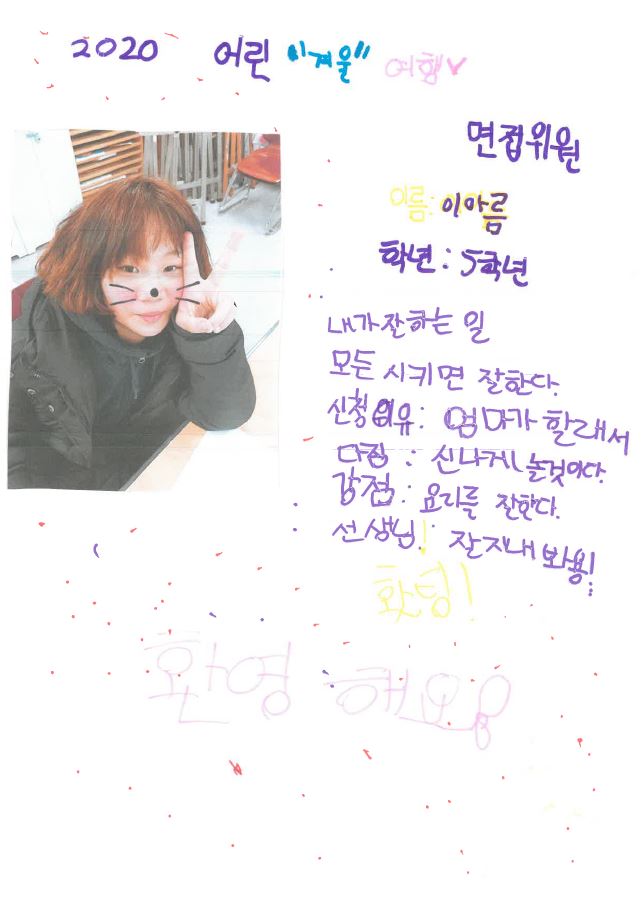 2020 어린 "겨울" 여행
면접위원
이름: 이아름
학년 : 5학년
내가 잘하는 일
모든 시키면 잘한다.
신청이유: 엄마가 할래서
다짐 : 신나게 놀것이다.
강점 : 요리를 잘한다.
선생님! 잘지내 봐용!
홧팅!
환영해요!